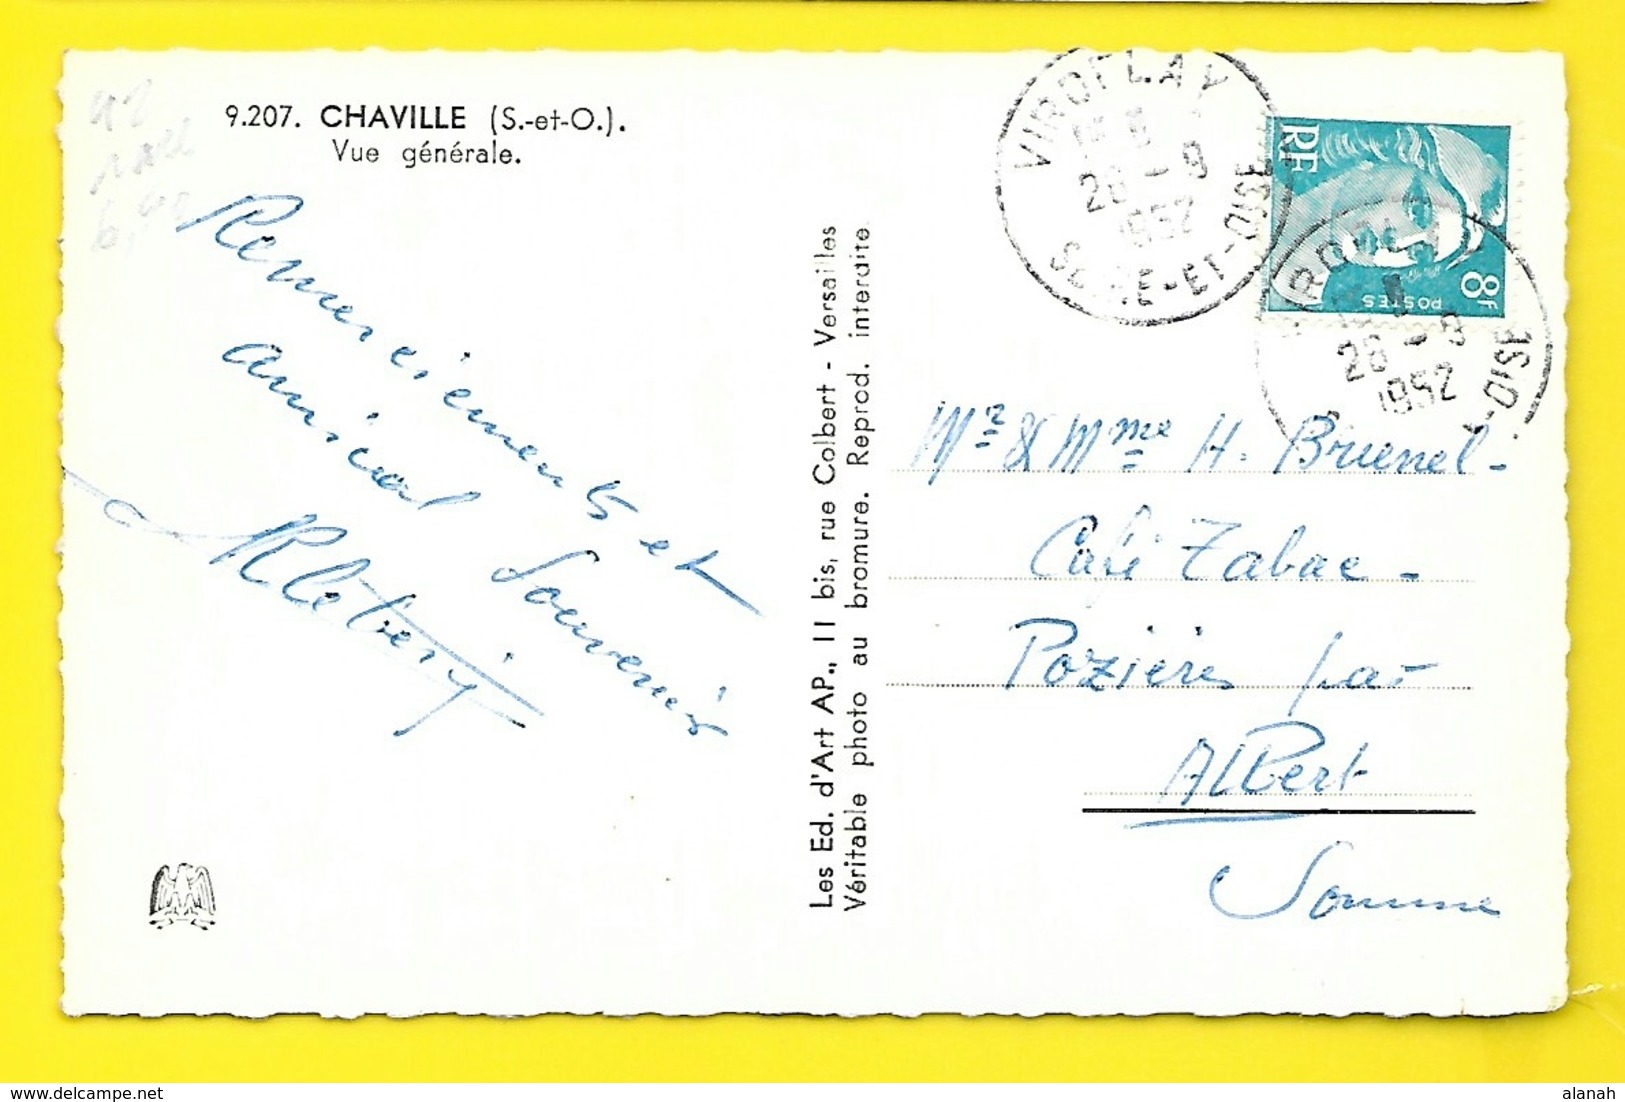 9.207. CHAVILLE (S.-et-O.).
Vue générale.
Remerciements et
amical Souvenir
Les Ed. d'Art AP., 11 bis, rue Colbert - Versailles
Véritable photo au bromure. Reprod. interdite
VIROFLAY
28 - 9
1952
SEINE-ET-OISE
RF
8F
POSTES
28 - 9
1952
OISE
Mr & Mme H. Brunel-
Café Tabac -
Pozières par
Albert
Somme
alanah